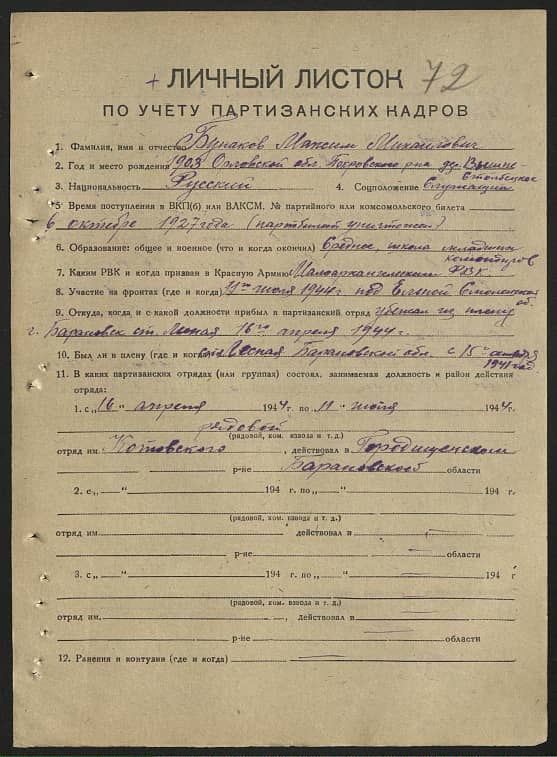 + ЛИЧНЫЙ ЛИСТОК 72
ПО УЧЕТУ ПАРТИЗАНСКИХ КАДРОВ
1. Фамилия, имя и отчество Бунаков Максим Михайлович
2. Год и место рождения 1903 Орловской обл. Покровского р-на д.
3. Национальность Русский 4. Соцположение Служащий
5. Время поступления в ВКП(б) или ВЛКСМ, № партийного или комсомольского билета
6 октября 1927 года (партбилет уничтожен)
6. Образование: общее и военное (что и когда окончил) Среднее, школа младших
командиров
7. Каким РВК и когда призван в Красную Армию Малоархангельским РВК
8. Участие на фронтах (где и когда) июля 1941 г под Ельней Смоленской
об.
9. Откуда, когда и с какой должности прибыл в партизанский отряд убежал из плену
г. Барановск ст. Лесная 16го апреля 1944 г.
10. Был ли в плену (где и когда) Лесная Барановской обл. с 15
1941 год
11. В каких партизанских отрядах (или группах) состоял, занимаемая должность и район действия
отряда:
1. с „16“ апреля 1944 г. по 11 “ июля 1944 г.
рядовой
(рядовой, ком. взвода и т. д.)
отряд им. Котовского, действовал в Городищенском
р-не Барановской области
2. с „ “ 194 г. по „ “ 194 г.
(рядовой, ком. взвода и т. д.)
отряд им. действовал в
р-не области
3. с „ “ 194 г. по „ “ 194 г
(рядовой, ком. взвода и т. д.)
отряд им. , действовал в
р-не области
12. Ранения и контузии (где и когда)